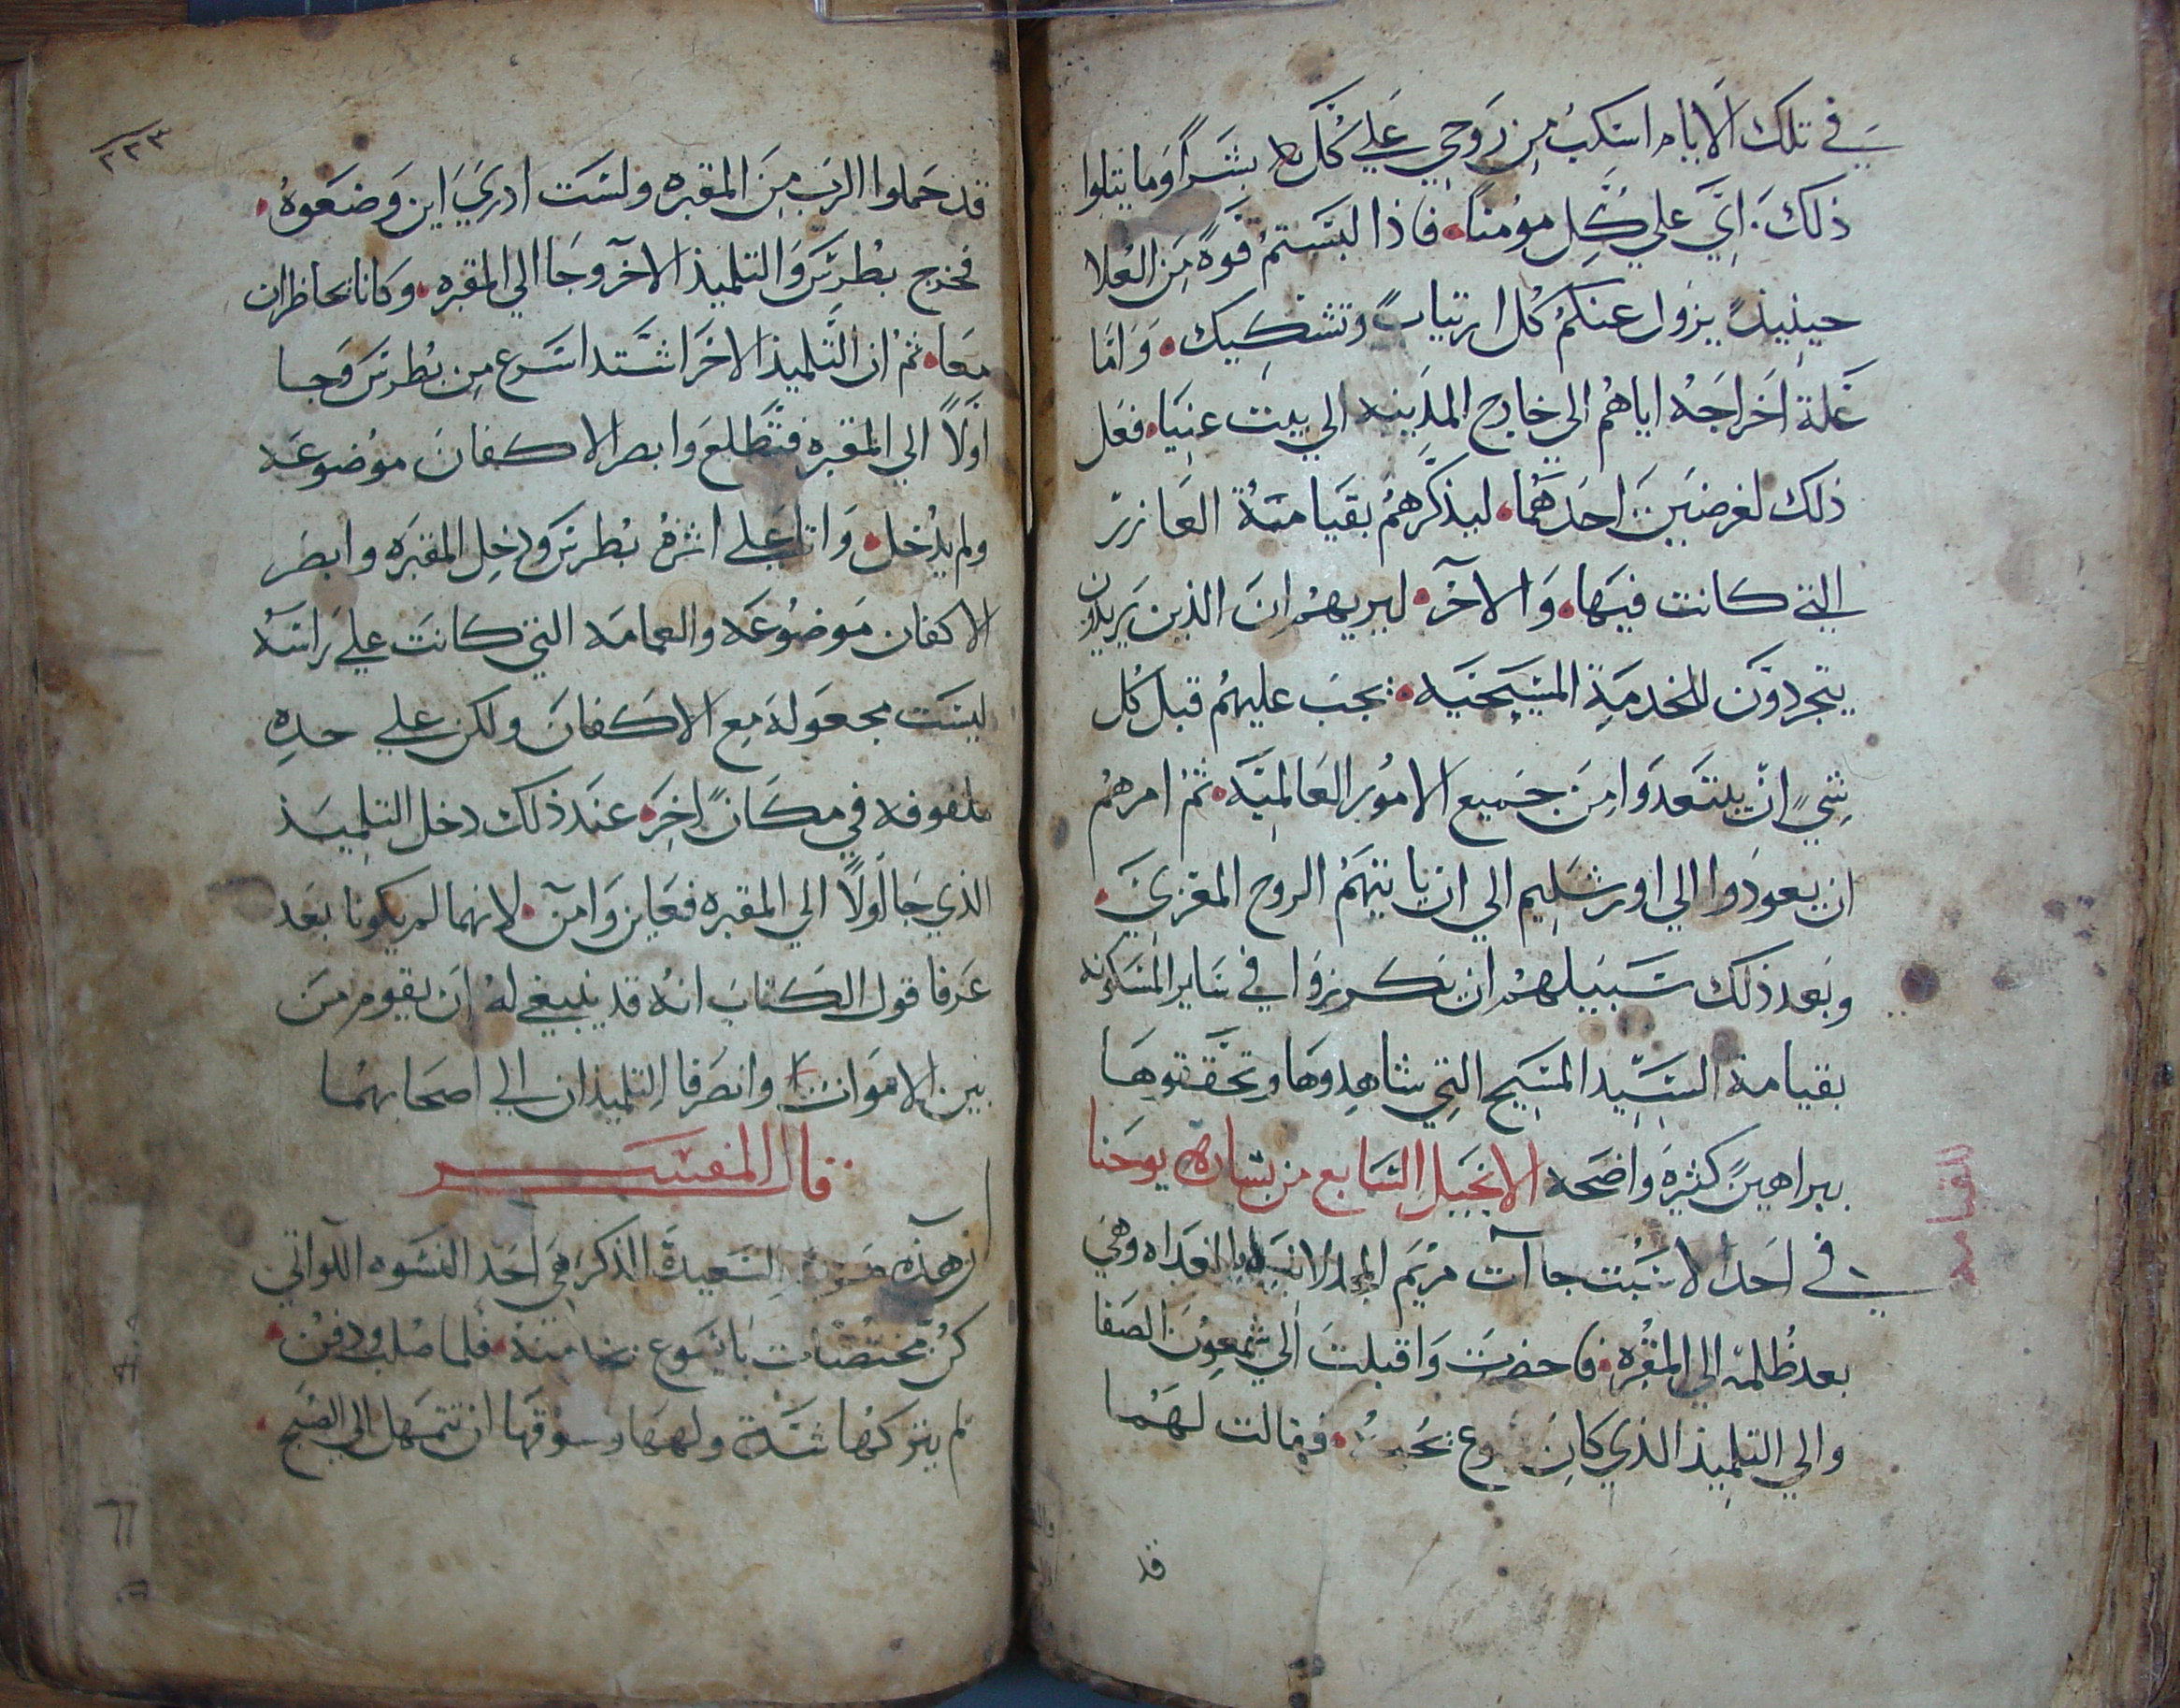 في تلك الايام اسكب من روحي علي كل بشر اوما يتلوا
ذلك. اي علي كل مومنا. فاذا لبستم قوة من العلا
حينيذ يزول عنكم كل ارتياب وتشكيك. واما
علة اخراجه اياهم الي خارج المدينه الي بيت عنيا. فعل
ذلك لغرضين احدهما. ليذكرهم بقيامة العازر
التي كانت فيها. والاخر. ليريهم ان الذين يريدون
يتجردون للخدمة المسيحيه. يجب عليهم قبل كل
شي ان يبتعدوا من جميع الامور العالمية. ثم امرهم
ان يعودوا الي اورشليم الي ان ياتيهم الروح المعزي.
وبعد ذلك سبيلهم ان يكرزوا في ساير المسكونه
بقيامة السيد المسيح التي شاهدوها وتحققوها
ببراهين كثيرة واضحه الانجيل السابع من بشارة يوحنا
القيامه
في احد الاسبت جاات مريم المجدلانيه بالغداه وهي
بعد ظلمة الي المقبره. فاحضرت واقبلت الي شمعون الصفا
والي التلميذ الذي كان يحبه. فقالت لهما
قد
٢٣٣
قد حملوا الرب من المقبره ولست ادري اين وضعوه.
فخرج بطرس والتلميذ الاخر وجا الي المقبره. وكانا يحاظران
معا. ثم ان التلميذ الاخر اشتد اسرع من بطرس وجا
اولا الي المقبره فتطلع وابصر الاكفان موضوعه
ولم يدخل. واتا علي اثره بطرس ودخل المقبره وابصر
الاكفان موضوعه والعمامه التي كانت علي راسه
ليست مجعولة مع الاكفان ولكن علي حده
ملفوفه في مكان اخر. عند ذلك دخل التلميذ
الذي جا اولا الي المقبره فعاين وامن. لانهما لم يكونا بعد
عرفا قول الكتاب انه قد ينبغي له ان يقوم من
بين الاموات وانصرفا التلميذان الي اصحابهما
قال المفسر
ان هذه السعيدة الذكر هي احد النسوه اللواتي
كن مختصات بايسوع بخدمته. فلما صلب ودفن.
لم يتركها شدة ولهها وشوقها ان تتمهل الي الصبح.